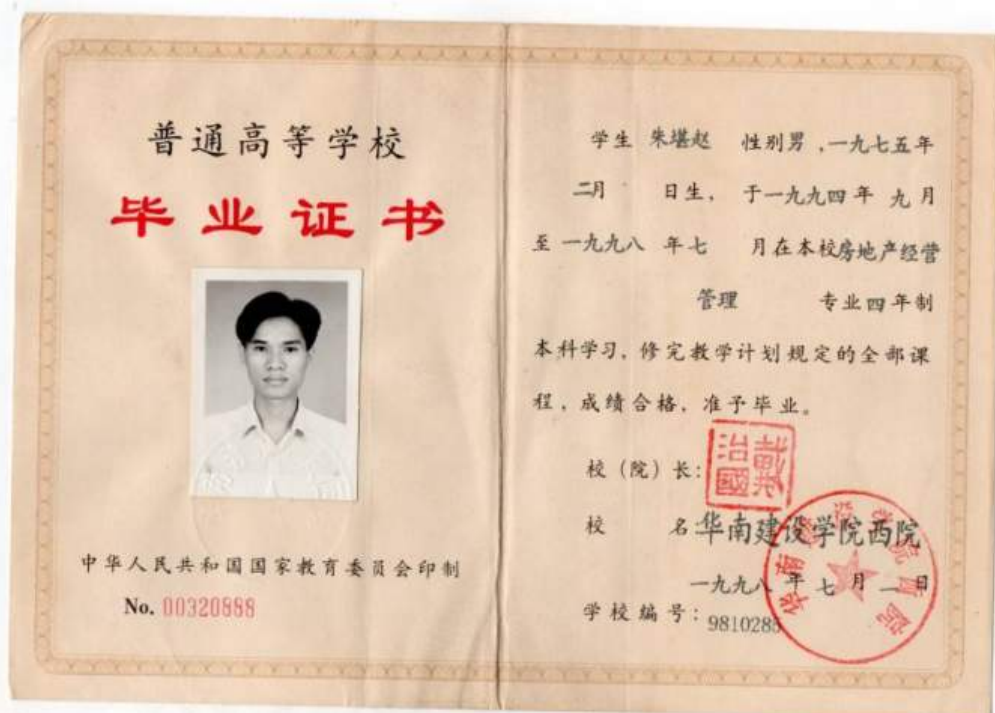 普通高等学校
毕业证书
中华人民共和国国家教育委员会印制
No. 00320888
学生 朱堪赵 性别男，一九七五年
二月 日生，于一九九四年 九月
至 一九九八 年七 月在本校房地产经营
管理 专业四年制
本科学习，修完教学计划规定的全部课
程，成绩合格，准予毕业。
校（院）长：
戴治國
校 名：华南建设学院西院
一九九八年七月一日
学校编号：9810285
华南建设学院西院